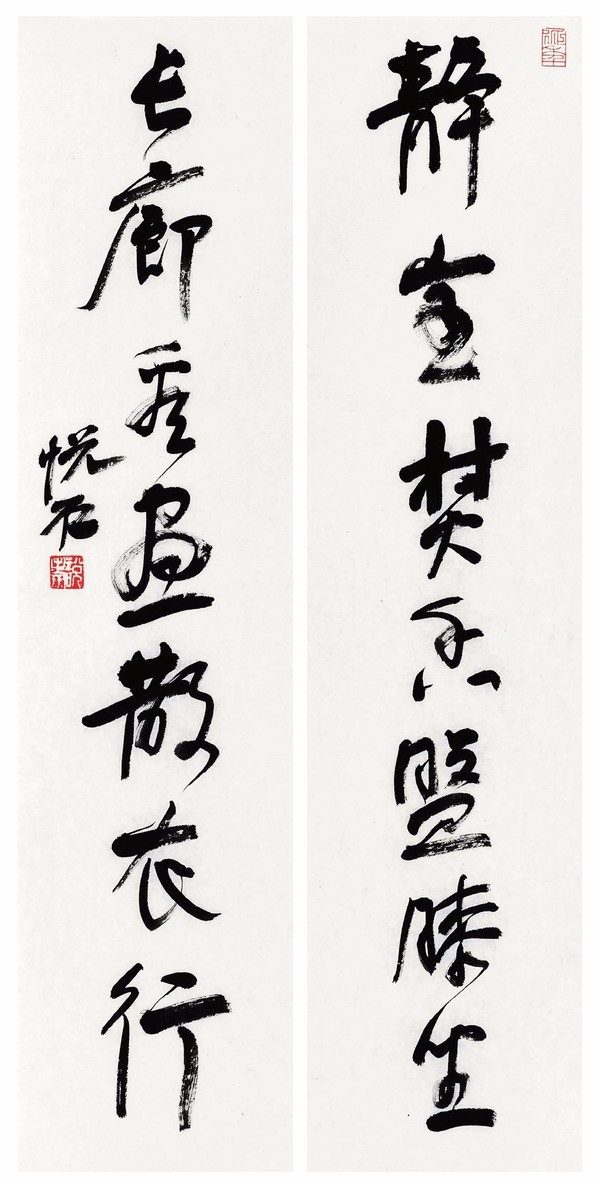 静室焚香盤膝坐
长廊看畫散衣行
悦石